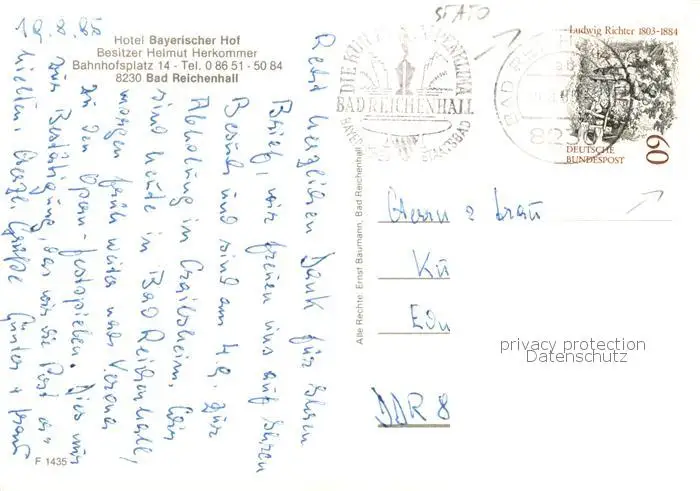 19.8.85
Hotel Bayerischer Hof
Besitzer Helmut Herkommer
Bahnhofsplatz 14 - Tel. 0 86 51 - 50 84
8230 Bad Reichenhall
Recht herzlichen Dank für Ihren
Brief, wir freuen uns auf Ihren
Besuch und sind am 4.9. zur
Abholung in Crailsheim. Wir
sind heute in Bad Reichenhall,
morgen früh weiter nach Verona
zu den Opern-festspielen. Dies nur
zur Bestätigung, das wir die Post er-
hielten. Herzl. Grüße Günter + Frau
F 1435
Alle Rechte: Ernst Baumann, Bad Reichenhall
STATO
DIE KUR
ALPENKLIMA
BAD REICHENHALL
BAYER. STAATSBAD
BAD REI
8230
Ludwig Richter 1803-1884
DEUTSCHE
BUNDESPOST
60
Herrn & Frau
Kü
Edu
DDR 8
privacy protection
Datenschutz